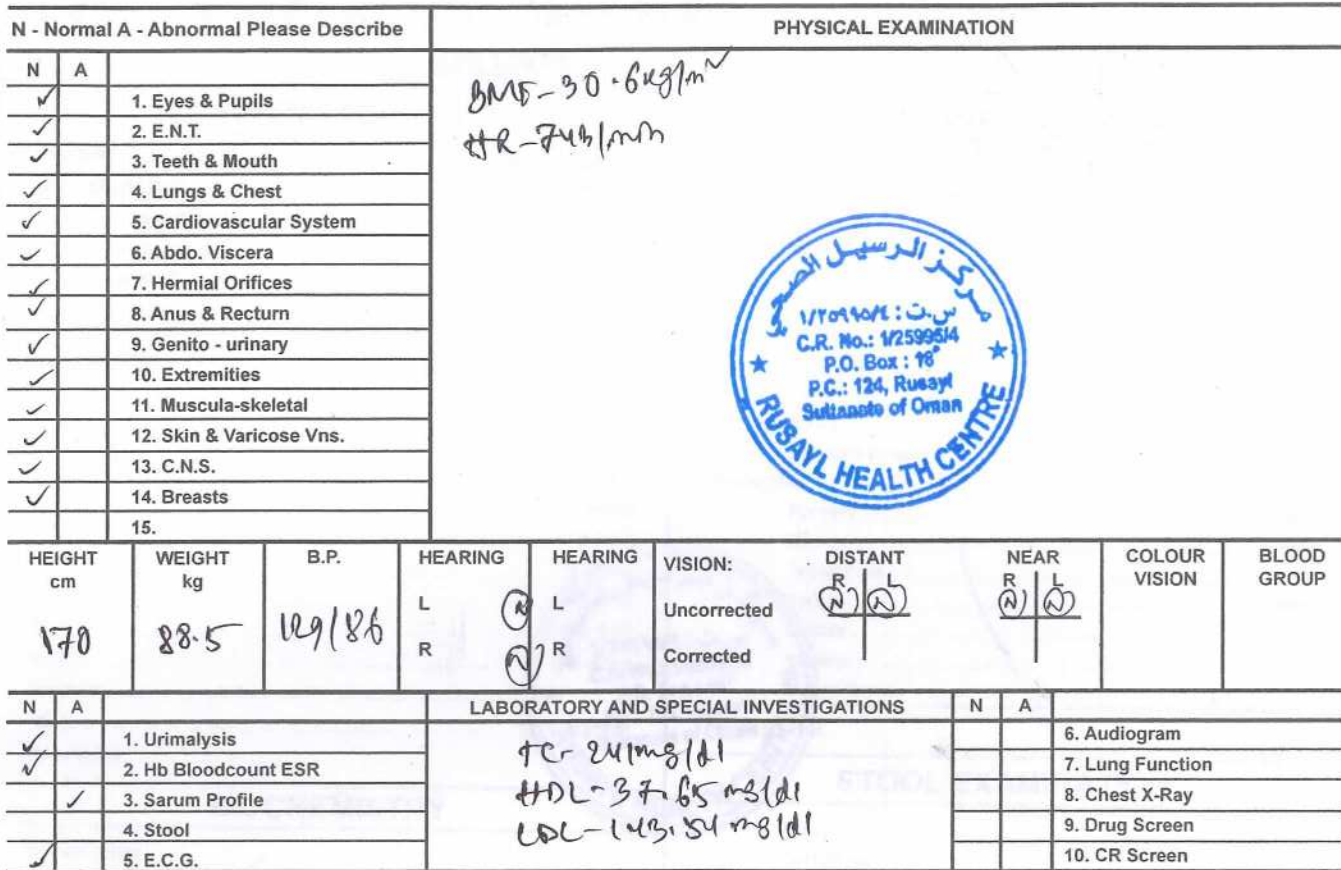 N - Normal A - Abnormal Please Describe
PHYSICAL EXAMINATION
N A
✓ 1. Eyes & Pupils
✓ 2. E.N.T.
✓ 3. Teeth & Mouth
✓ 4. Lungs & Chest
✓ 5. Cardiovascular System
✓ 6. Abdo. Viscera
✓ 7. Hermial Orifices
✓ 8. Anus & Recturn
✓ 9. Genito - urinary
✓ 10. Extremities
✓ 11. Muscula-skeletal
✓ 12. Skin & Varicose Vns.
✓ 13. C.N.S.
✓ 14. Breasts
15.
BMI - 30.6kg/m²
HR - 74b/min
مركز الرسيل الصحي
س.ت : ١/٢٥٩٩٥/٤
C.R. No.: 1/25995/4
P.O. Box : 18
P.C.: 124, Rusayl
Sultanate of Oman
RUSAYL HEALTH CENTRE
HEIGHT WEIGHT B.P. HEARING HEARING VISION: DISTANT NEAR COLOUR BLOOD
cm kg R L R L VISION GROUP
170 88.5 129/86 L N L Uncorrected N N N N
R N R Corrected
N A LABORATORY AND SPECIAL INVESTIGATIONS N A
✓ 1. Urimalysis
✓ 2. Hb Bloodcount ESR
✓ 3. Sarum Profile
4. Stool
✓ 5. E.C.G.
TC - 241mg/dl
HDL - 37.65 mg/dl
LDL - 143.54 mg/dl
6. Audiogram
7. Lung Function
8. Chest X-Ray
9. Drug Screen
10. CR Screen